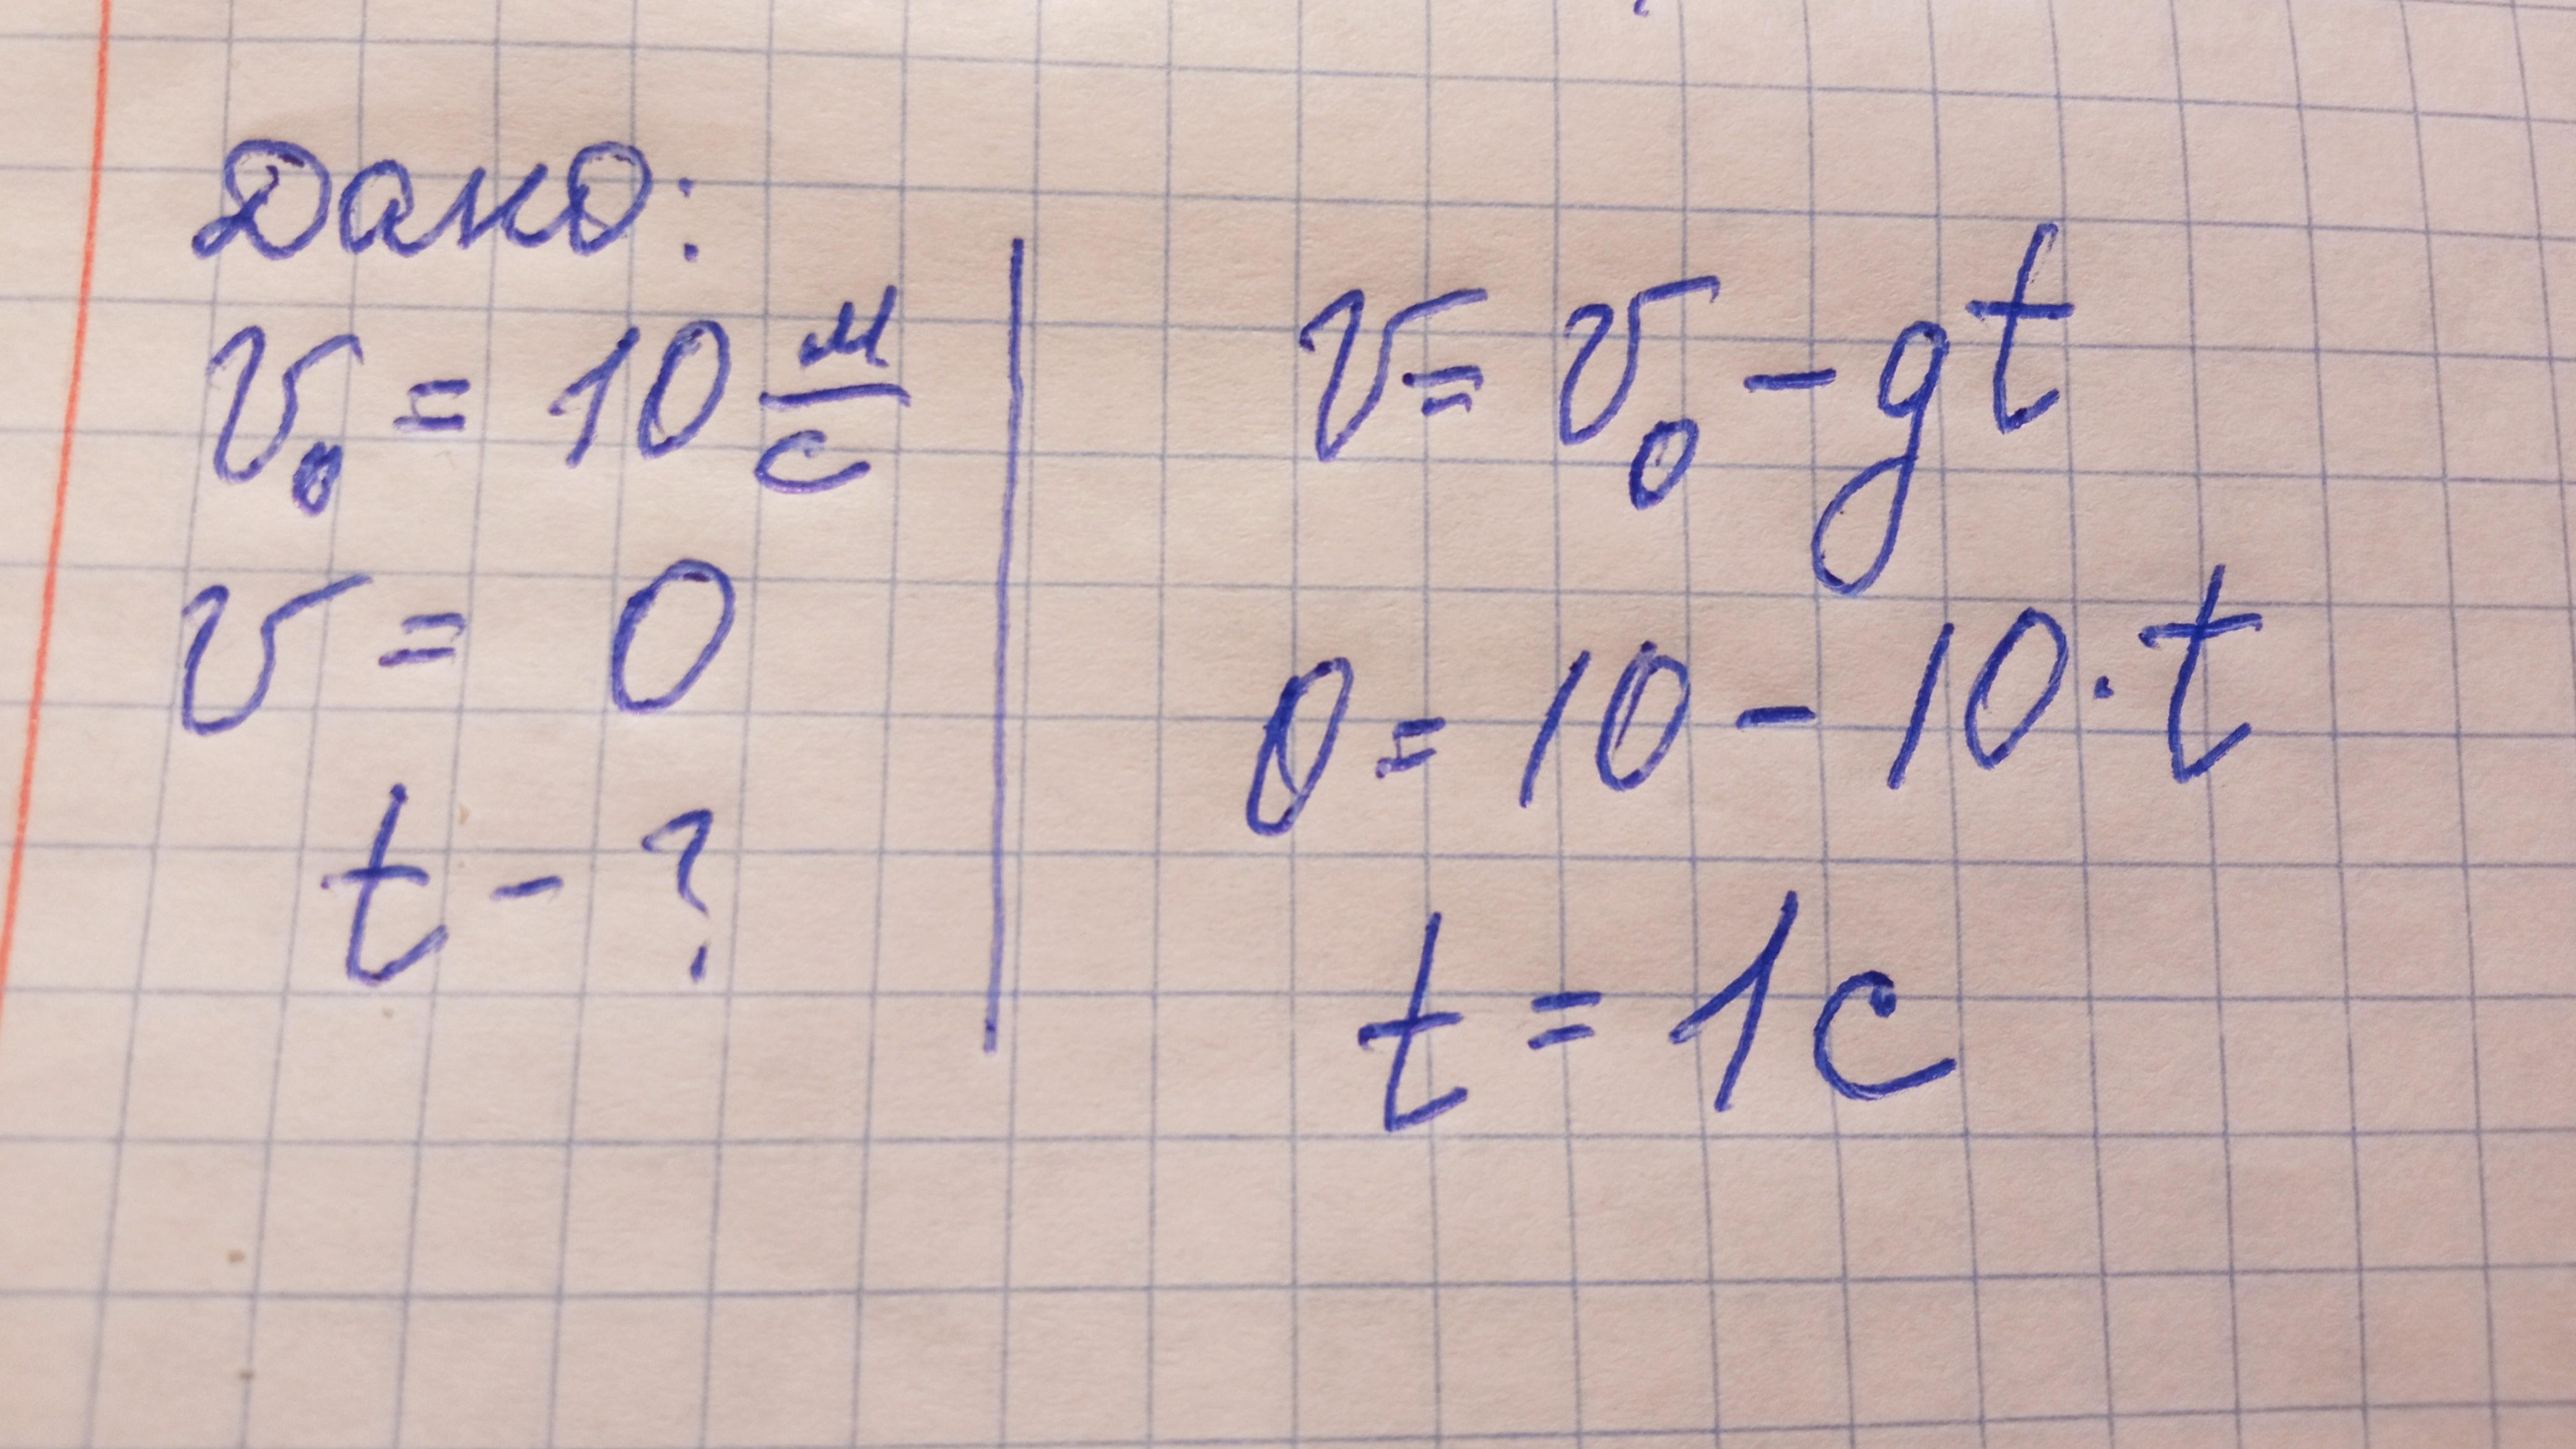 Дано:
v₀ = 10 м/с
v = 0
t - ?
v = v₀ - gt
0 = 10 - 10 · t
t = 1 с